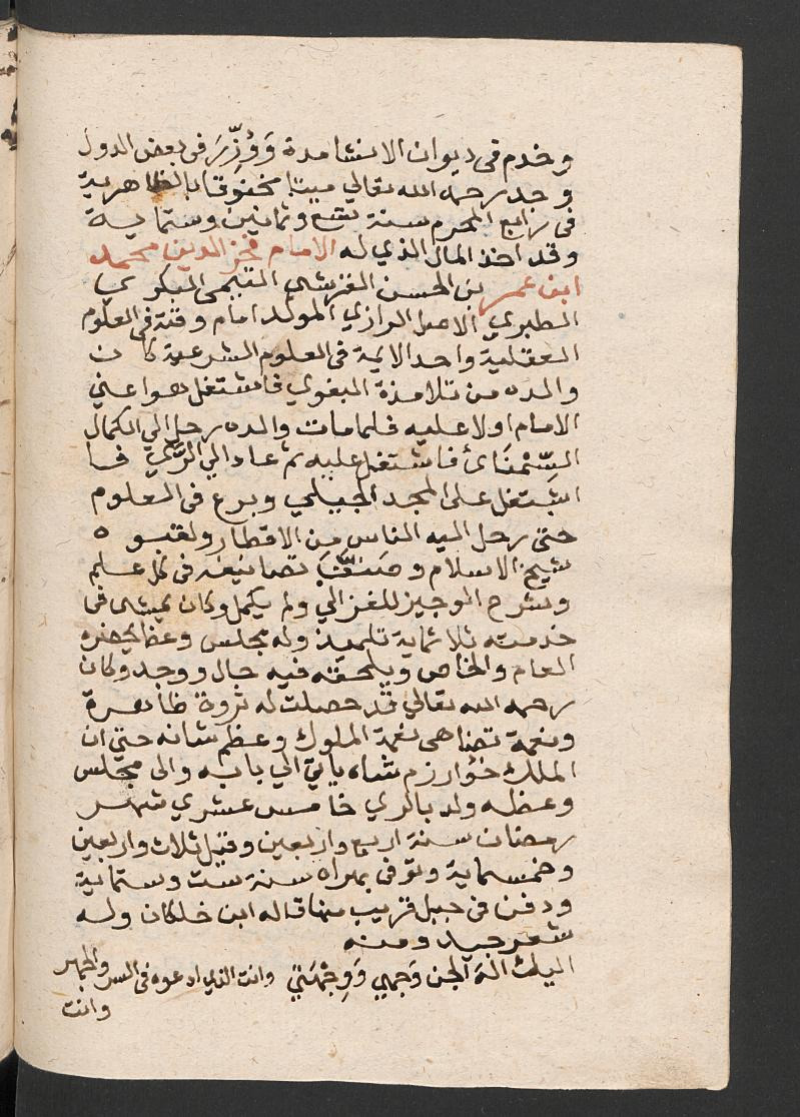 وخدم فى ديوان الانشا مدة وَوُزِّرَ فى بعض الدول
وجد رحمه الله تعالي ميتا مخنوقا بالظاهرية
فى رابع المحرم سنة تسع وثمانين وستماية
وقد اخذ المال الذي له الامام فخر الدين محمد
ابن عمر بن الحسن القرشي التيمى البكري
الطبري الاصل الرازي المولد امام وقته فى العلوم
العقلية واحد الايمة فى العلوم الشرعية كان
والده من تلامذة البغوي فاشتغل هو اعني
الامام اولا عليه فلما مات والده رحل الي الكمال
السِّمْنَاى فاشتغل عليه ثم عاد الي الرَّي فا
اشتغل على المجد الجيلي وبرع فى العلوم
حتى رحل اليه الناس من الاقطار ولقبوه
شيخ الاسلام وصنفت تصانيفه فى كل علم
وشرح الوجيز للغزالي ولم يكمل وكان يمشى فى
خدمته ثلاثماية تلميذ وله مجلس وعظ يحضره
العام والخاص ويلحقه فيه حال ووجد وكان
رحمه الله تعالي قد حصلت له ثروة ظاهرة
ونعمة تضاهى نعمة الملوك وعظم شانه حتى ان
الملك خوارزم شاه ياتي الي بابه والى مجلس
وعظه ولد بالري خامس عشري شهر
رمضان سنة اربع واربعين وقيل ثلاث واربعين
وخمسماية وتوفى بهراه سنة ست وستماية
ودفن فى جبل قريب منها قاله ابن خلكان وله
شعر جيد ومنه
اليك اله الجن وَجهي وَوِجْهَتي وانت الذي ادعوه فى السر والجهر
وانت